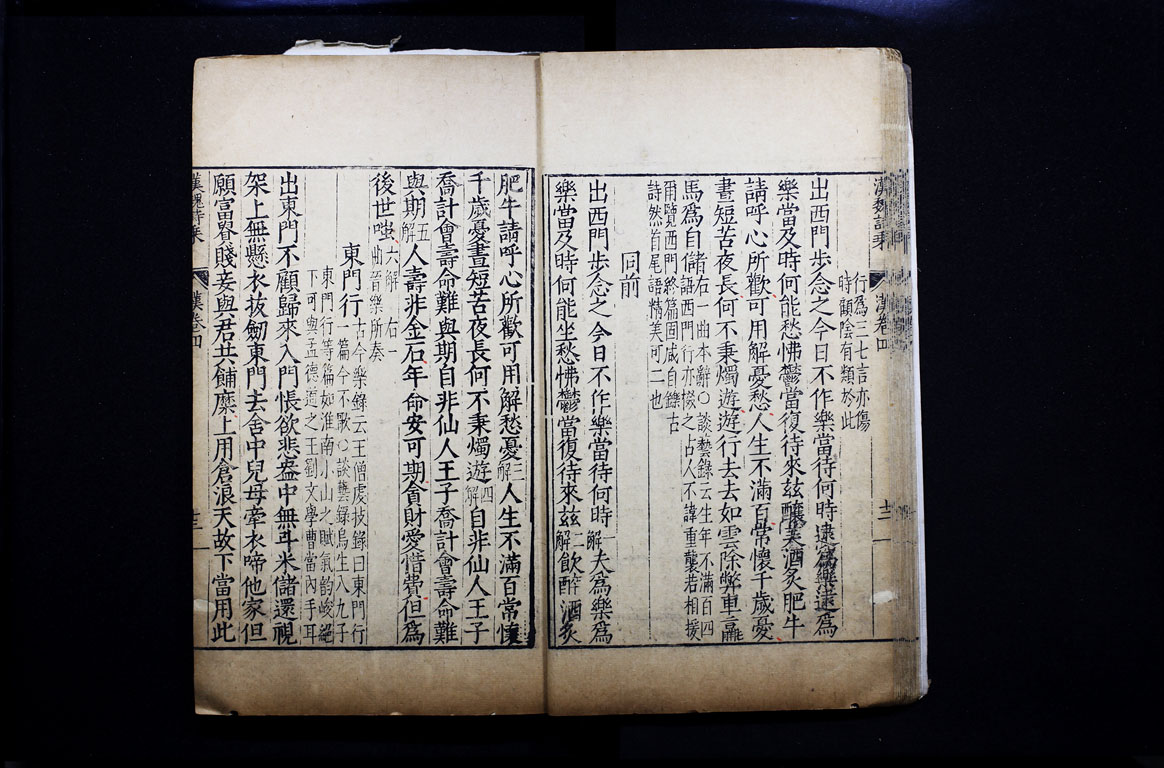 漢魏詩乘
漢卷四
十二
行為三七言亦傷
時顧陰有類於此
出西門步念之今日不作樂當待何時逮為樂逮為
樂當及時何能愁怫鬱當復待來玆釀美酒炙肥牛
請呼心所歡可用解憂愁人生不滿百常懷千歲憂
晝短苦夜長何不秉燭遊遊行去去如雲除弊車羸
馬為自儲右一曲本辭○談藝錄云生年不滿百四
語西門行亦掇之古人不諱重襲若相援
爾覽西門終篇固咸自鑠古
詩然首尾語精美可二也
同前
出西門步念之今日不作樂當待何時一解夫為樂為
樂當及時何能坐愁怫鬱當復待來玆二解飲醇酒炙
肥牛請呼心所歡可用解愁憂三解人生不滿百常懷
千歲憂晝短苦夜長何不秉燭遊四解自非仙人王子
喬計會壽命難與期自非仙人王子喬計會壽命難
與期五解人壽非金石年命安可期貪財愛惜費但為
後世嗤六解右一
曲晉樂所奏
東門行古今樂錄云王僧虔技錄曰東門行
一篇今不歌○談藝錄烏生八九子
東門行等篇如淮南小山之賦氣韵峻絕
下可與孟德道之王劉文學曹當內手耳
出東門不顧歸來入門悵欲悲盎中無斗米儲還視
架上無懸衣拔劒東門去舍中兒母牽衣啼他家但
願富貴賤妾與君共餔糜上用倉浪天故下當用此
漢魏詩乘
漢卷四
十三